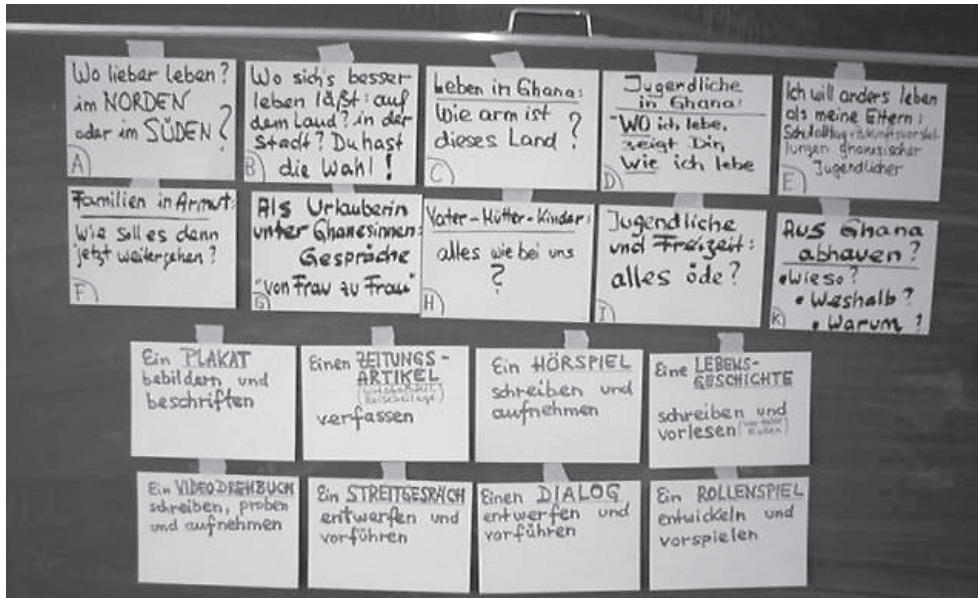 Wo lieber leben?
im NORDEN
oder im SÜDEN?
A
Wo sich's besser
leben läßt: auf
dem Land? in der
Stadt? Du hast
die Wahl!
B
Leben in Ghana:
Wie arm ist
dieses Land?
C
Jugendliche
in Ghana:
"WO ich lebe,
zeigt Dir,
Wie ich lebe
D
Ich will anders leben
als meine Eltern:
Schulalltag + Zukunftsvorstel-
lungen ghanesischer
Jugendlicher
E
Familien in Armut:
Wie soll es denn
jetzt weitergehen?
F
Als Urlauberin
unter Ghanesinnen:
Gespräche
"von Frau zu Frau"
G
Vater-Mütter-Kinder:
alles wie bei uns
?
H
Jugendliche
und Freizeit:
alles öde?
I
Aus Ghana
abhauen?
• Wieso?
• Weshalb?
• Warum?
K
Ein PLAKAT
bebildern und
beschriften
Einen ZEITUNGS-
ARTIKEL
verfassen
Ein HÖRSPIEL
schreiben und
aufnehmen
Eine LEBENS-
GESCHICHTE
schreiben und
vorlesen
Ein VIDEODREHBUCH
schreiben, proben
und aufnehmen
Ein STREITGESPRÄCH
entwerfen und
vorführen
Einen DIALOG
entwerfen und
vorführen
Ein ROLLENSPIEL
entwickeln und
vorspielen